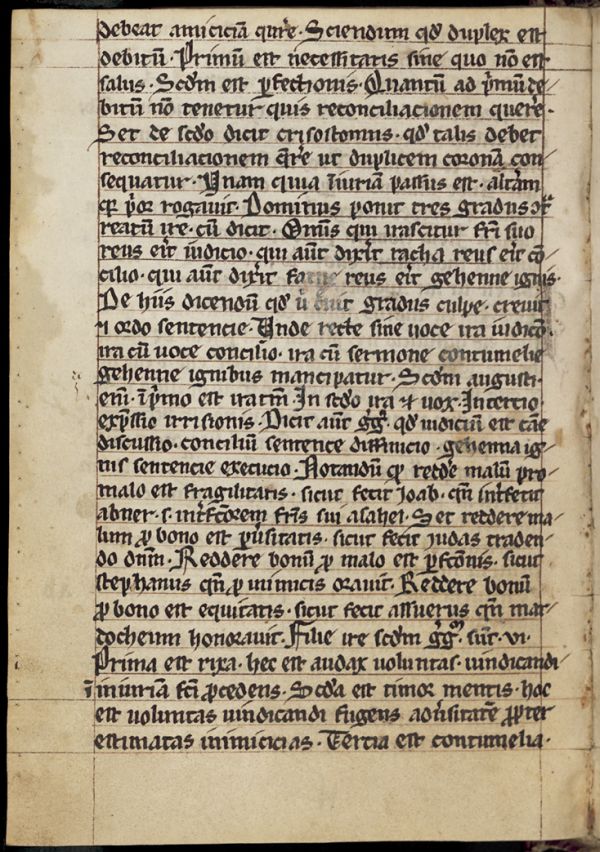 debeat amiciciā qūre · Sciendum qd duplex est
debitū · Primū est necessitatis sine quo nō est
salus · Scdm est ꝑfectionis · Quantū ad p̄mū de
bitū nō tenetur quis reconciliacionem querē ·
Set de scdo dicit crisostomus · qd talis debet
reconciliacionem qr̄re ut duplicem coronā con
sequatur · Unam quia īiuriam passus est · altam
qꝛ pͥor rogavit · Dominus ponit tres gradus
reatū ire · cū dicit · Omīs qui irascitur fr̄i suo
reus er̄it iudicio · qui aūt dix̄it racha reus er̄it cō
cilio · qui aūt dix̄it fatue reus er̄it gehenne ignis ·
De hiis dicendū qd gradus culpe · crevit
⁊ ordo sentencie · Unde recte sine uoce ira iudicō ·
ira cū uoce concilio · ira cū sermone contumelie
gehenne ignibus mancipatur · Scdm augusti
enī · ī pͥmo est ira tm̄ · In scdo ira ⁊ uox · In tercio
exp̄ssio irrisionis · Dicit aūt gͥgͥ · qd iudiciū est cāe
discussio · conciliū sentence diffinicio · gehenna ig
nis sentencie execucio · Notandū ꝙ redde malū pro
malo est fragilitatis · sicut fecit Ioab · qn̄ int̄fecit
abner · s · int̄fc̄orem fr̄is sui asahel · Set reddere ma
lum ꝓ bono est ꝑūsitatis · sicut fecit iudas traden
do dn̄m · Reddere bonū ꝓ malo est ꝑfc̄onis · sicut
stephanus qn̄ ꝓ inimicis oravit · Reddere bonū
ꝓ bono est equitatis · sicut fecit assuerus qn̄ mar
docheum honoravit · Filie ire scdm gͥgͥ · sūt · vi ·
Prima est rixa · hec est audax voluntas · uindicandi
ī iniuriam fc̄i ꝓcedens · Scda est timor mentis · hoc
est voluntas uindicandi fugens adūsitatē ꝓpter
estimatas inimicicias · Tertia est contumelia ·